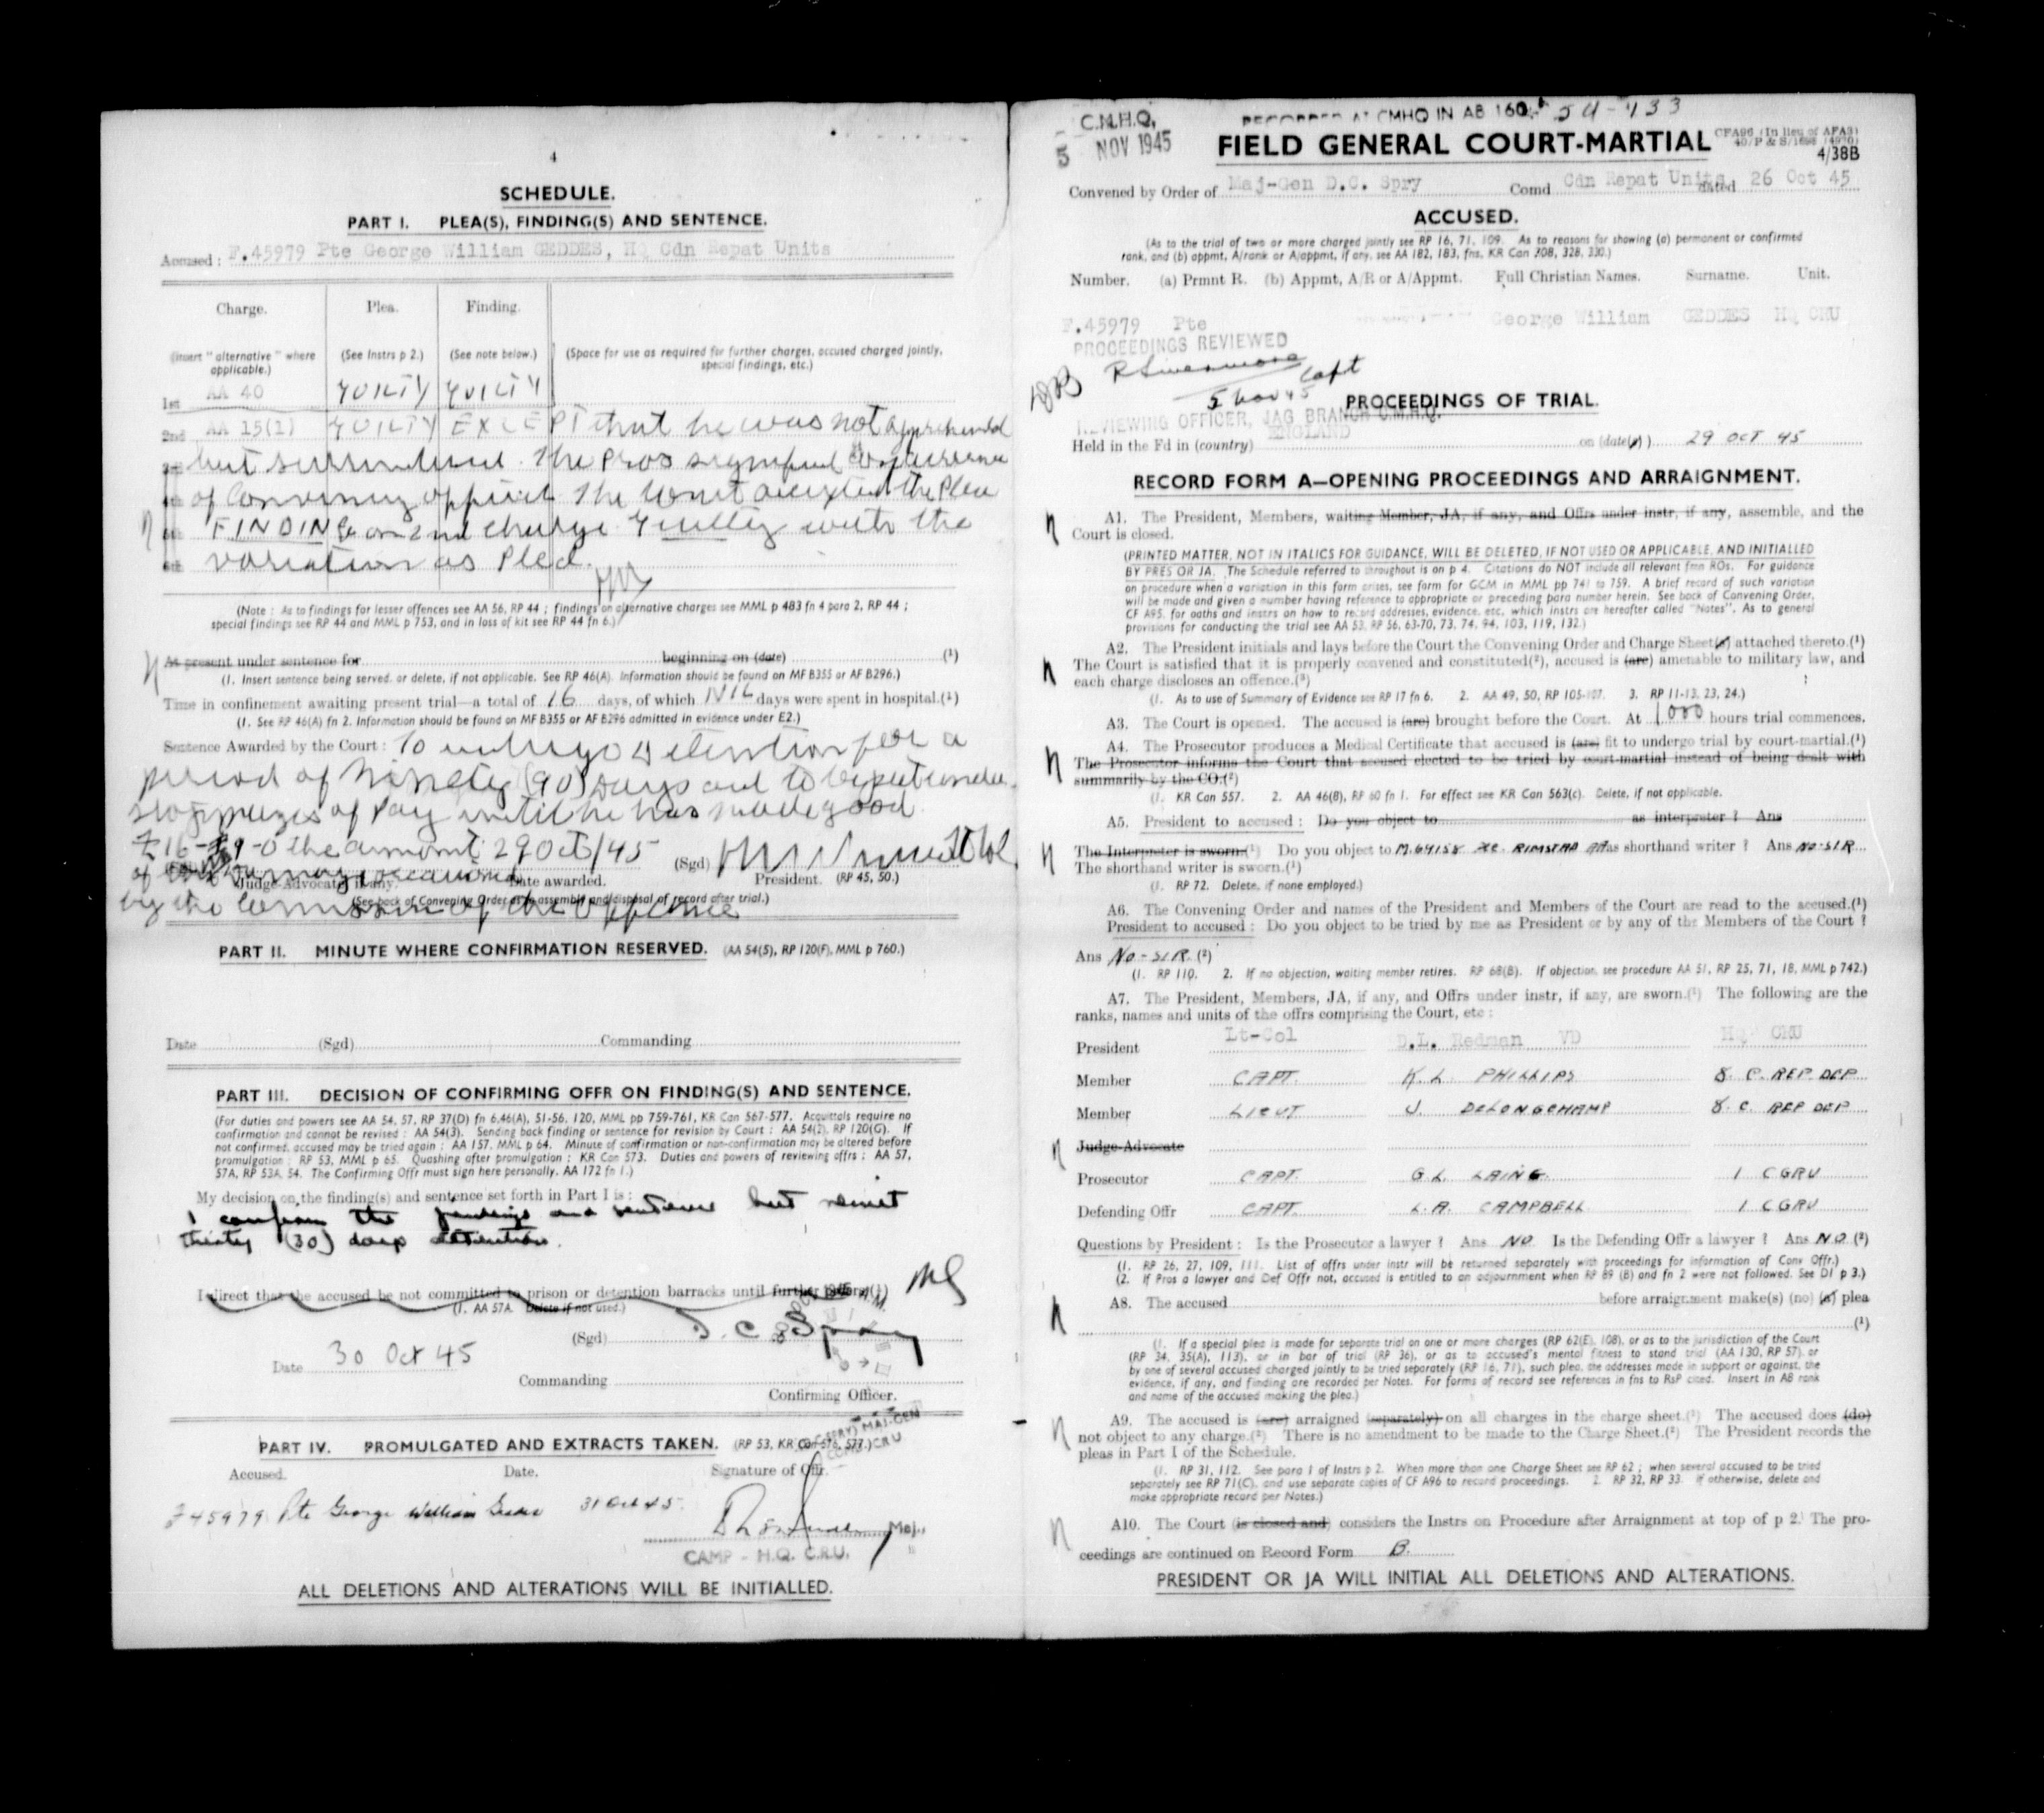 4
SCHEDULE.
PART I. PLEA(S), FINDING(S) AND SENTENCE.
Accused : F.45979 Pte George William GEDDES, HQ Cdn Repat Units
Charge. Plea. Finding.
(Insert "alternative" where applicable.) (See Instrs p 2.) (See note below.) (Space for use as required for further charges, accused charged jointly, special findings, etc.)
1st AA 40 GUILTY GUILTY
2nd AA 15(1) GUILTY EXCEPT that he was not apprehended
but surrendered. The Pros signified concurrence
of Convening officer. The Court accepted the Plea
FINDING on 2nd charge Guilty with the
variation as Pled.
(Note : As to findings for lesser offences see AA 56, RP 44 ; findings on alternative charges see MML p 483 fn 4 para 2, RP 44 ;
special findings see RP 44 and MML p 753, and in loss of kit see RP 44 fn 6.)
At present under sentence for beginning on (date) (1)
(1. Insert sentence being served, or delete, if not applicable. See RP 46(A). Information should be found on MF B355 or AF B296.)
Time in confinement awaiting present trial—a total of 16 days, of which NIL days were spent in hospital.(1)
(1. See RP 46(A) fn 2. Information should be found on MF B355 or AF B296 admitted in evidence under E2.)
Sentence Awarded by the Court : To undergo detention for a
period of Ninety (90) Days and to be put under
stoppages of Pay until he has made good
£16-£9-0 the amount 29 Oct/45 (Sgd)
of
Judge-Advocate if any. Date awarded. President. (RP 45, 50.)
(See back of Convening Order as to assembly and disposal of record after trial.)
by the Commission of the offence
PART II. MINUTE WHERE CONFIRMATION RESERVED. (AA 54(5), RP 120(F), MML p 760.)
Date (Sgd) Commanding
PART III. DECISION OF CONFIRMING OFFR ON FINDING(S) AND SENTENCE.
(For duties and powers see AA 54, 57, RP 37(D) fn 6,46(A), 51-56, 120, MML pp 759-761, KR Can 567-577. Acquittals require no
confirmation and cannot be revised : AA 54(3). Sending back finding or sentence for revision by Court : AA 54(2), RP 120(G). If
not confirmed, accused may be tried again : AA 157, MML p 64. Minute of confirmation or non-confirmation may be altered before
promulgation : RP 53, MML p 65. Quashing after promulgation : KR Can 573. Duties and powers of reviewing offrs : AA 57,
57A, RP 53A, 54. The Confirming Offr must sign here personally, AA 172 fn 1.)
My decision on the finding(s) and sentence set forth in Part I is :
I confirm the findings and sentence but remit
thirty (30) days detention.
I direct that the accused be not committed to prison or detention barracks until further orders.(1)
(1. AA 57A. Delete if not used.)
(Sgd) D. C. Spry
Date 30 Oct 45
Commanding
Confirming Officer.
(SPRY) MAJ-GEN
COMD CRU
PART IV. PROMULGATED AND EXTRACTS TAKEN. (RP 53, KR Can 576, 577.)
Accused. Date. Signature of Offr.
F 45979 Pte George William Geddes 31 Oct 45
Maj.,
CAMP - H.Q. C.R.U.
ALL DELETIONS AND ALTERATIONS WILL BE INITIALLED.
C.M.H.Q. RECORDED AT CMHQ IN AB 160
5 NOV 1945
FIELD GENERAL COURT-MARTIAL
CFA96 (In lieu of AFA3)
4/38B
Convened by Order of Maj-Gen D.C. Spry Comd Cdn Repat Units dated 26 Oct 45
ACCUSED.
(As to the trial of two or more charged jointly see RP 16, 71, 109. As to reasons for showing (a) permanent or confirmed
rank, and (b) appmt, A/rank or A/appmt, if any, see AA 182, 183, fns, KR Can 308, 328, 330.)
Number. (a) Prmnt R. (b) Appmt, A/R or A/Appmt. Full Christian Names. Surname. Unit.
F.45979 Pte George William GEDDES HQ CRU
PROCEEDINGS REVIEWED
Capt
5 Nov 45
PROCEEDINGS OF TRIAL.
REVIEWING OFFICER, JAG BRANCH C.M.H.Q.
Held in the Fd in (country) ENGLAND on (date(s)) 29 OCT 45
RECORD FORM A—OPENING PROCEEDINGS AND ARRAIGNMENT.
A1. The President, Members, waiting Member, JA, if any, and Offrs under instr, if any, assemble, and the
Court is closed.
(PRINTED MATTER, NOT IN ITALICS FOR GUIDANCE, WILL BE DELETED, IF NOT USED OR APPLICABLE, AND INITIALLED
BY PRES OR JA. The Schedule referred to throughout is on p 4. Citations do NOT include all relevant fmn ROs. For guidance
on procedure when a variation in this form arises, see form for GCM in MML pp 741 to 759. A brief record of such variation
will be made and given a number having reference to appropriate or preceding para number herein. See back of Convening Order,
CF A95, for oaths and instrs on how to record addresses, evidence, etc, which instrs are hereafter called "Notes". As to general
provisions for conducting the trial see AA 53, RP 56, 63-70, 73, 74, 94, 103, 119, 132.)
A2. The President initials and lays before the Court the Convening Order and Charge Sheet(s) attached thereto.(1)
The Court is satisfied that it is properly convened and constituted(2), accused is (are) amenable to military law, and
each charge discloses an offence.(3)
(1. As to use of Summary of Evidence see RP 17 fn 6. 2. AA 49, 50, RP 105-107. 3. RP 11-13, 23, 24.)
A3. The Court is opened. The accused is (are) brought before the Court. At 1000 hours trial commences.
A4. The Prosecutor produces a Medical Certificate that accused is (are) fit to undergo trial by court-martial.(1)
The Prosecutor informs the Court that accused elected to be tried by court-martial instead of being dealt with
summarily by the CO.(2)
(1. KR Can 557. 2. AA 46(8), RP 60 fn 1. For effect see KR Can 563(c). Delete, if not applicable.
A5. President to accused : Do you object to as interpreter ? Ans
The Interpreter is sworn.(1) Do you object to M.64158 as shorthand writer ? Ans NO-SIR
The shorthand writer is sworn.(1)
(1. RP 72. Delete, if none employed.)
A6. The Convening Order and names of the President and Members of the Court are read to the accused.(1)
President to accused : Do you object to be tried by me as President or by any of the Members of the Court ?
Ans NO-SIR (2)
(1. RP 110. 2. If no objection, waiting member retires. RP 68(B). If objection, see procedure AA 51, RP 25, 71, 18, MML p 742.)
A7. The President, Members, JA, if any, and Offrs under instr, if any, are sworn.(1) The following are the
ranks, names and units of the offrs comprising the Court, etc :
President Lt-Col D.L. Redman VD HQ CRU
Member CAPT. K. L PHILLIPS 8 C. REP DEP
Member LIEUT J. DELONGCHAMP 8 C. REP DEP
Judge-Advocate
Prosecutor CAPT. G L LAING 1 CGRU
Defending Offr CAPT. L.A. CAMPBELL 1 CGRU
Questions by President : Is the Prosecutor a lawyer ? Ans NO Is the Defending Offr a lawyer ? Ans NO (2)
(1. RP 26, 27, 109, 111. List of offrs under instr will be returned separately with proceedings for information of Conv Offr.)
(2. If Pros a lawyer and Def Offr not, accused is entitled to an adjournment when RP 89 (B) and fn 2 were not followed. See D1 p 3.)
A8. The accused before arraignment make(s) (no) (a) plea
(1)
(1. If a special plea is made for separate trial on one or more charges (RP 62(E), 108), or as to the jurisdiction of the Court
(RP 34, 35(A), 113), or in bar of trial (RP 36), or as to accused's mental fitness to stand trial (AA 130, RP 57) or
by one of several accused charged jointly to be tried separately (RP 16, 71), such plea, the addresses made in support or against, the
evidence, if any, and finding are recorded per Notes. For forms of record see references in fns to RsP cited. Insert in A8 rank
and name of the accused making the plea.)
A9. The accused is (are) arraigned (separately) on all charges in the charge sheet.(1) The accused does (do)
not object to any charge.(2) There is no amendment to be made to the Charge Sheet.(2) The President records the
pleas in Part I of the Schedule.
(1. RP 31, 112. See para 1 of Instrs p 2. When more than one Charge Sheet see RP 62 ; when several accused to be tried
separately see RP 71(C), and use separate copies of CF A96 to record proceedings. 2. RP 32, RP 33. If otherwise, delete and
make appropriate record per Notes.)
A10. The Court (is closed and) considers the Instrs on Procedure after Arraignment at top of p 2. The pro-
ceedings are continued on Record Form B.
PRESIDENT OR JA WILL INITIAL ALL DELETIONS AND ALTERATIONS.